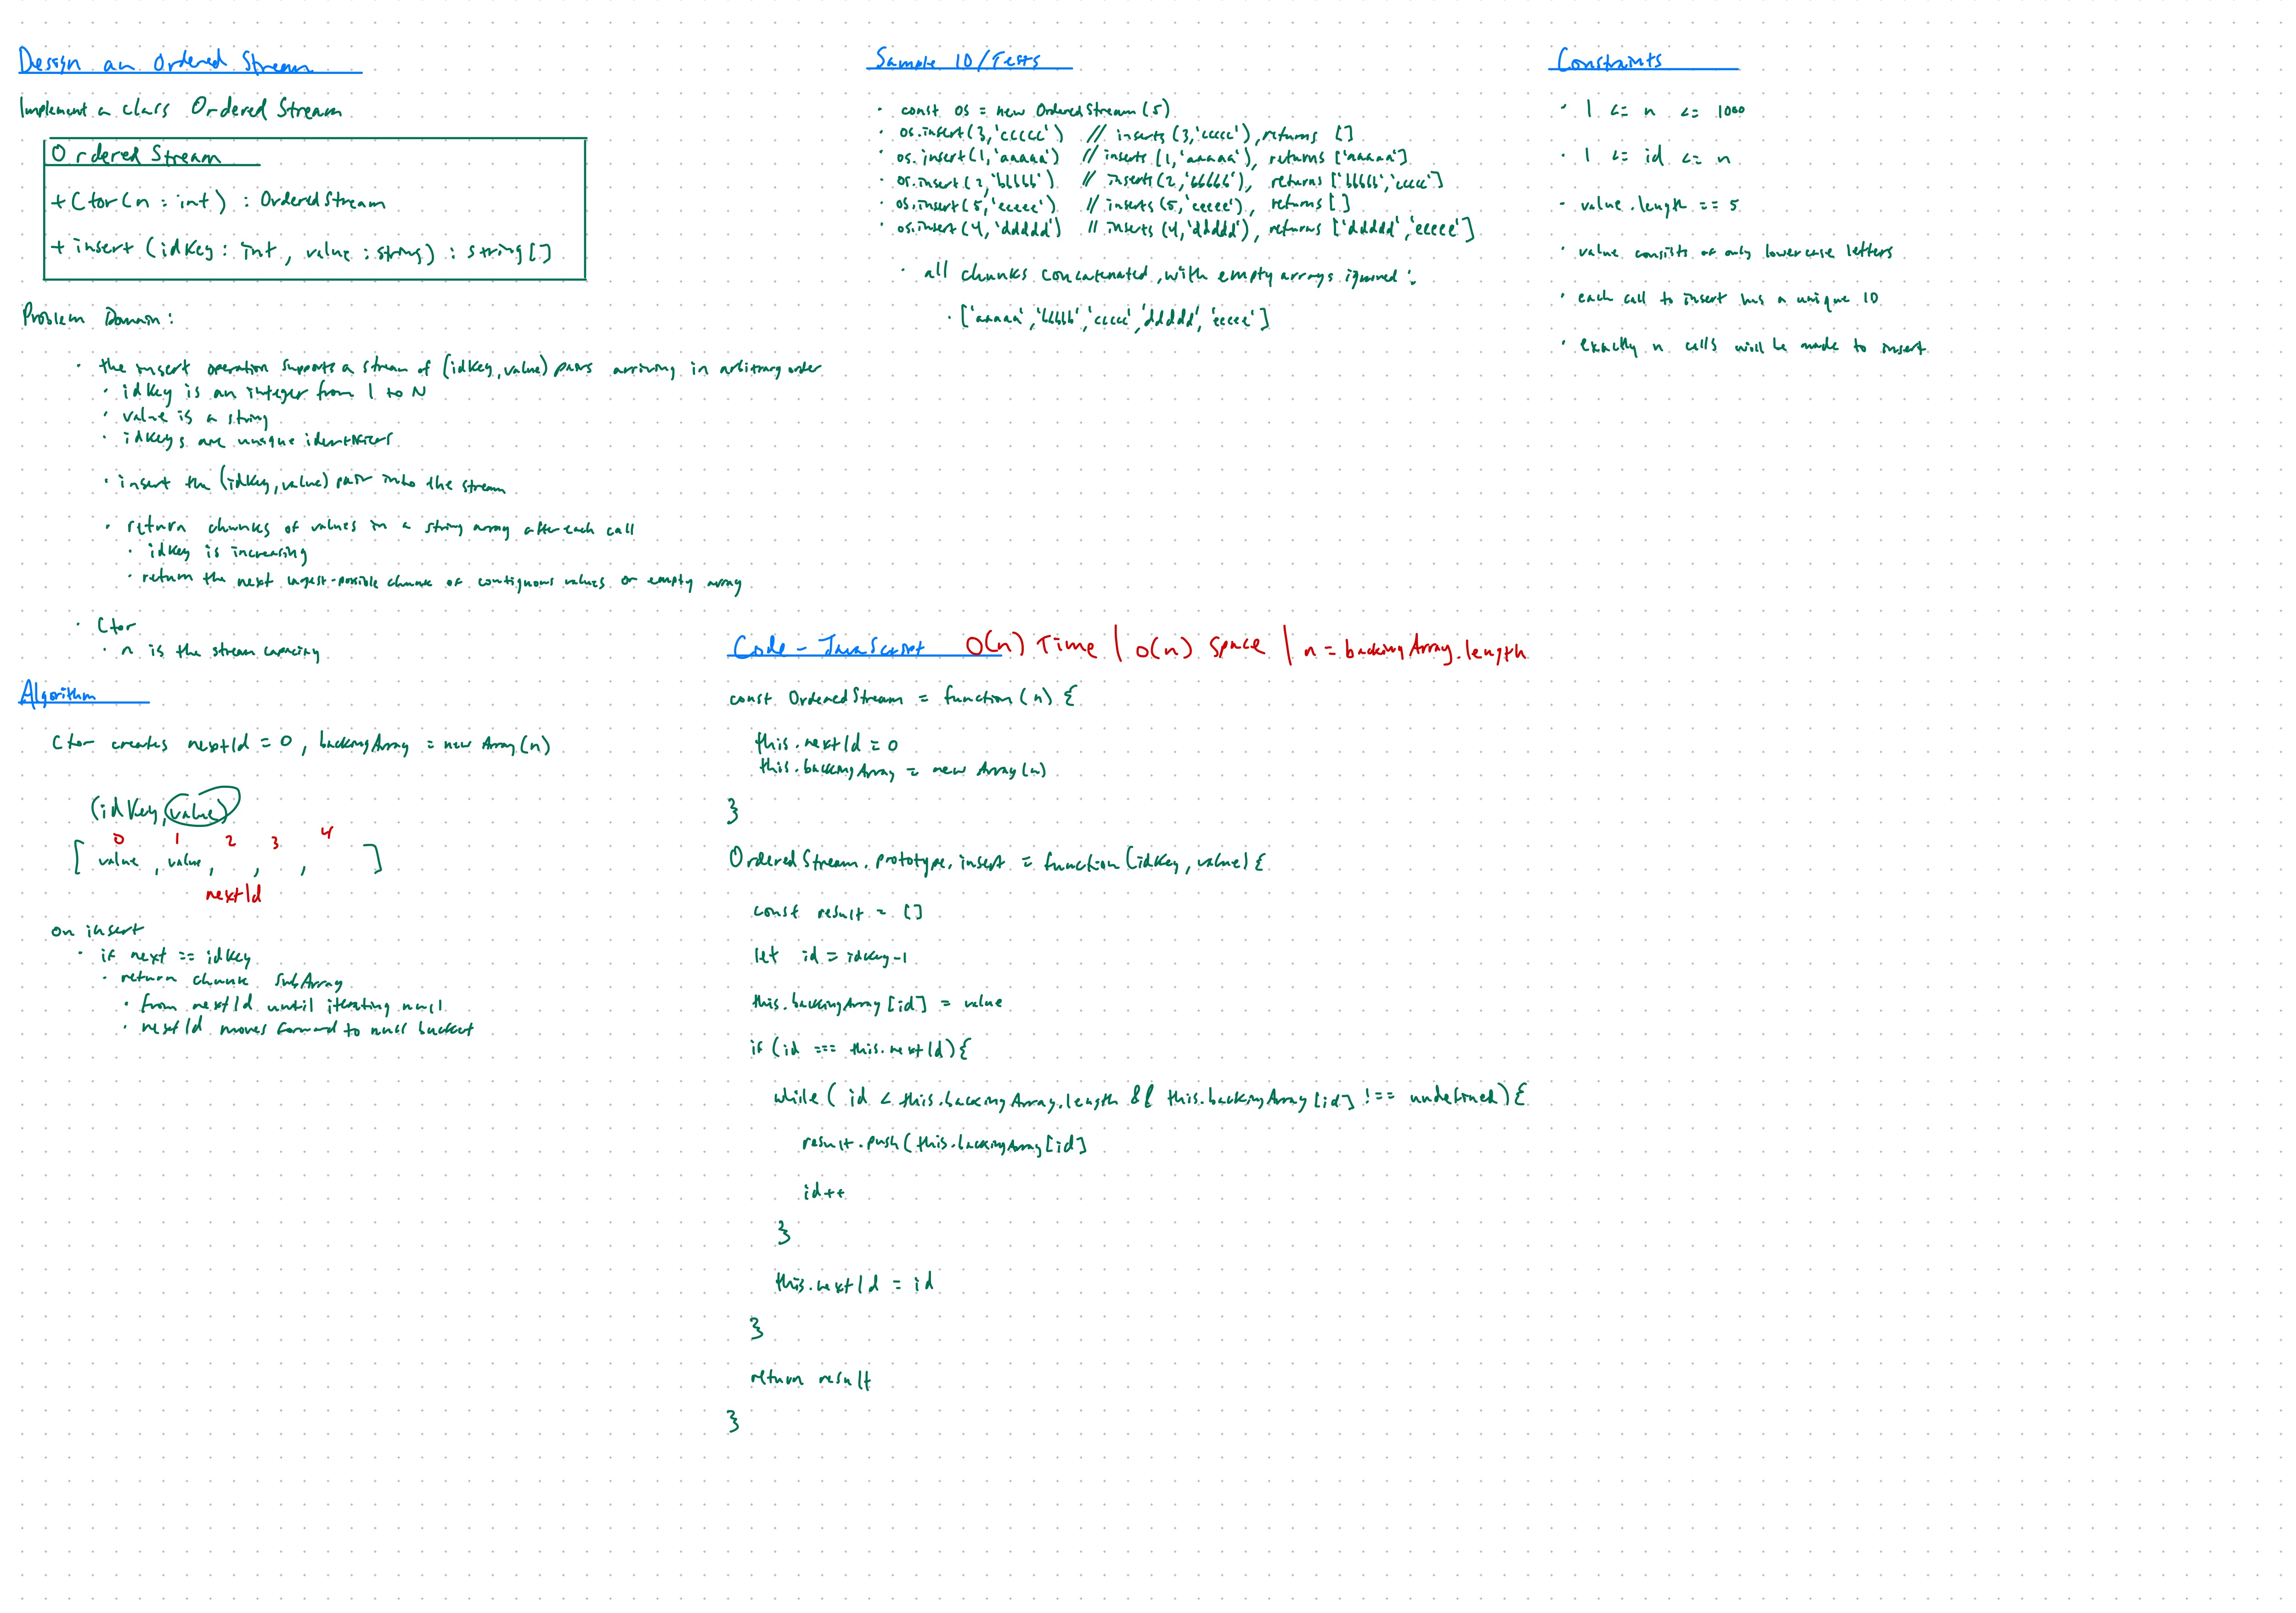 Design an Ordered Stream
Implement a class Ordered Stream
Ordered Stream
+ Ctor(n : int) : OrderedStream
+ insert (idKey : int, value : string) : string[]
Problem Domain:
· the insert operation supports a stream of (idKey, value) pairs arriving in arbitrary order
· idKey is an integer from 1 to N
· value is a string
· idKeys are unique identifiers
· insert the (idKey, value) pair into the stream
· return chunks of values in a string array after each call
· idKey is increasing
· return the next largest-possible chunk of contiguous values or empty array
· Ctor
· n is the stream capacity
Algorithm
Ctor creates nextId = 0, backingArray = new Array(n)
(idKey, value)
0 1 2 3 4
[ value , value, , , ]
nextId
on insert
· if next == idKey
· return chunk subArray
· from nextId until iterating null
· nextId moves forward to null bucket
Sample IO/Tests
· const os = new OrderedStream(5)
· os.insert(3,'ccccc') // inserts (3,'cccc'), returns []
· os.insert(1,'aaaaa') // inserts (1,'aaaaa'), returns ['aaaaa']
· os.insert(2,'bbbbb') // inserts (2,'bbbbb'), returns ['bbbbb','cccc']
· os.insert(5,'eeeee') // inserts (5,'eeeee'), returns []
· os.insert(4,'ddddd') // inserts (4,'ddddd'), returns ['ddddd','eeeee']
· all chunks concatenated, with empty arrays ignored:
· ['aaaaa','bbbbb','ccccc','ddddd','eeeee']
Constraints
· 1 <= n <= 1000
· 1 <= id <= n
· value.length == 5
· value consists of only lowercase letters
· each call to insert has a unique ID
· exactly n calls will be made to insert
Code - JavaScript O(n) Time | O(n) Space | n = backingArray.length
const OrderedStream = function(n) {
this.nextId = 0
this.backingArray = new Array(n)
}
OrderedStream.prototype.insert = function(idKey, value){
const result = []
let id = idKey-1
this.backingArray[id] = value
if (id === this.nextId){
while( id < this.backingArray.length && this.backingArray[id] !== undefined){
result.push(this.backingArray[id]
id++
}
this.nextId = id
}
return result
}